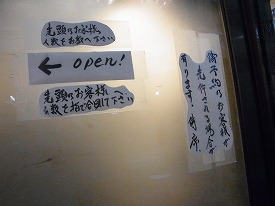 先頭のお客様
人数をお教へ下さい
← open!
先頭のお客様へ
人数を指で合図して下さい
御予約のお客様が
先行される場合が
有ります!